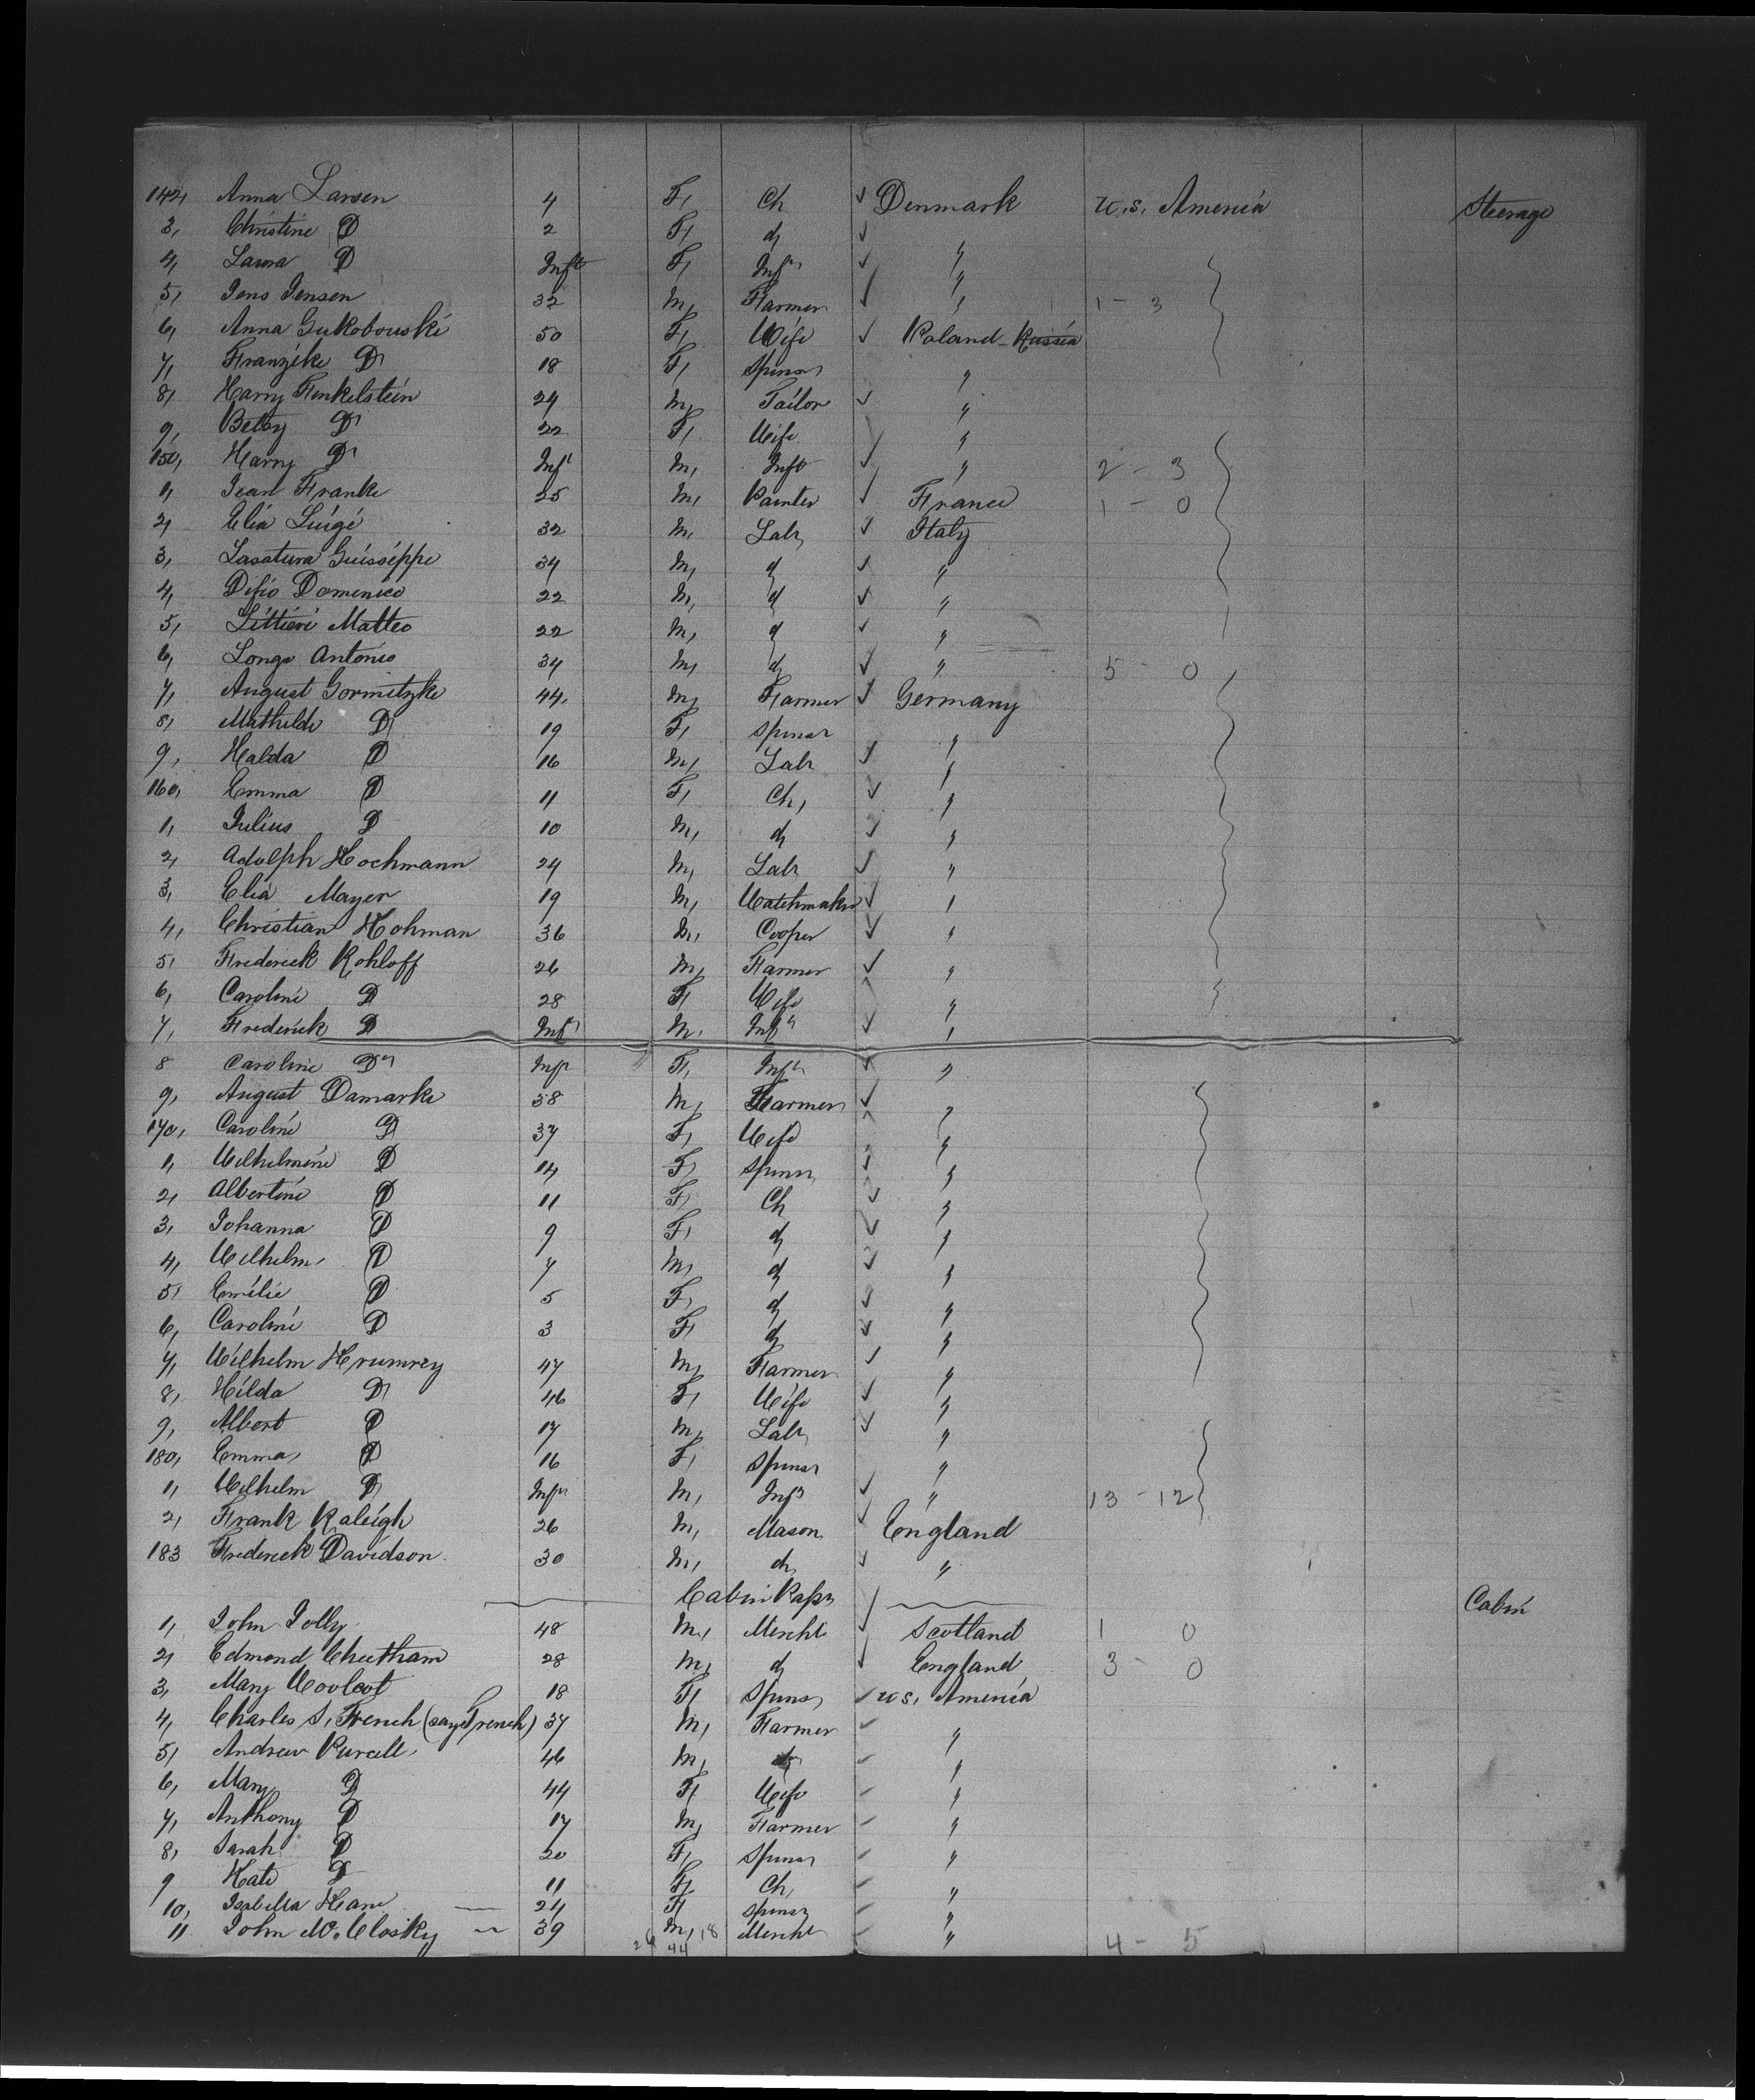 142, Anna Larsen 4 F, Ch ✓ Denmark U.S. America Steerage
3, Christine D 2 F, d ✓ "
4, Laura D Inft F, Inft ✓ "
5, Jens Jensen 32 M, Farmer ✓ " 1 - 3
6, Anna Gukobouski 50 F, Wife ✓ Poland-Russia
7, Franzike D 18 F, Spinsr "
8, Harry Finkelstein 24 M, Tailor ✓ "
9, Betsy D 22 F, Wife "
150, Harry D Inft M, Inft ✓ " 2 - 3
1, Jean Franke 25 M, Painter ✓ France 1 - 0
2, Elia Luigi 32 M, Labr ✓ Italy
3, Lasatura Guisseppe 34 M, d ✓ "
4, Difio Domenico 22 M, d ✓ "
5, Littieri Matteo 22 M, d ✓ "
6, Longo Antonio 34 M, d ✓ " 5 - 0
7, August Gormitzke 44, M, Farmer ✓ Germany
8, Mathilde D 19 F, Spinsr "
9, Halda D 16 M, Labr ✓ "
160, Emma D 11 F, Ch, ✓ "
1, Julius D 10 M, d ✓ "
2, Adolph Hochmann 24 M, Labr ✓ "
3, Elia Mayer 19 M, Watchmaker ✓ "
4, Christian Hohman 36 M, Cooper ✓ "
5, Frederick Kohloff 26 M, Farmer ✓ "
6, Caroline D 28 F, Wife "
7, Frederick D Inft M, Inft ✓ "
8 Caroline D Inft F, Inft "
9, August Damarke 38 M, Farmer ✓ "
170, Caroline D 37 F, Wife "
1, Wilhelmine D 14 F, Spinsr ✓ "
2, Albertine D 11 F, Ch ✓ "
3, Johanna D 9 F, d ✓ "
4, Wilhelm D 7 M, d ✓ "
5, Emilie D 5 F, d ✓ "
6, Caroline D 3 F, d ✓ "
7, Wilhelm Krumrey 47 M, Farmer ✓ "
8, Hilda D 46 F, Wife ✓ "
9, Albert D 17 M, Labr ✓ "
180, Emma D 16 F, Spinsr "
1, Wilhelm D Inft M, Inft ✓ " 13 - 12
2, Frank Raleigh 26 M, Mason ✓ England
183 Frederick Davidson 30 M, d ✓ "
Cabin Passr Cabin
1, John Jolly 48 M, Mercht ✓ Scotland 1 0
2, Edmond Cheetham 28 M, d ✓ England 3 - 0
3, Mary Woolcot 18 F, Spinsr ✓ U.S. America
4, Charles S. French (says Trench) 37 M, Farmer ✓ "
5, Andrew Purcell 46 M, d "
6, Mary D 44 F, Wife "
7, Anthony D 17 M, Farmer "
8, Sarah D 20 F, Spinsr "
9 Kate D 11 F, Ch, "
10, Isabella Kane 24 F, Spinsr "
11 John McClosky 39 M, 18 Mercht " 4 - 5
26 44